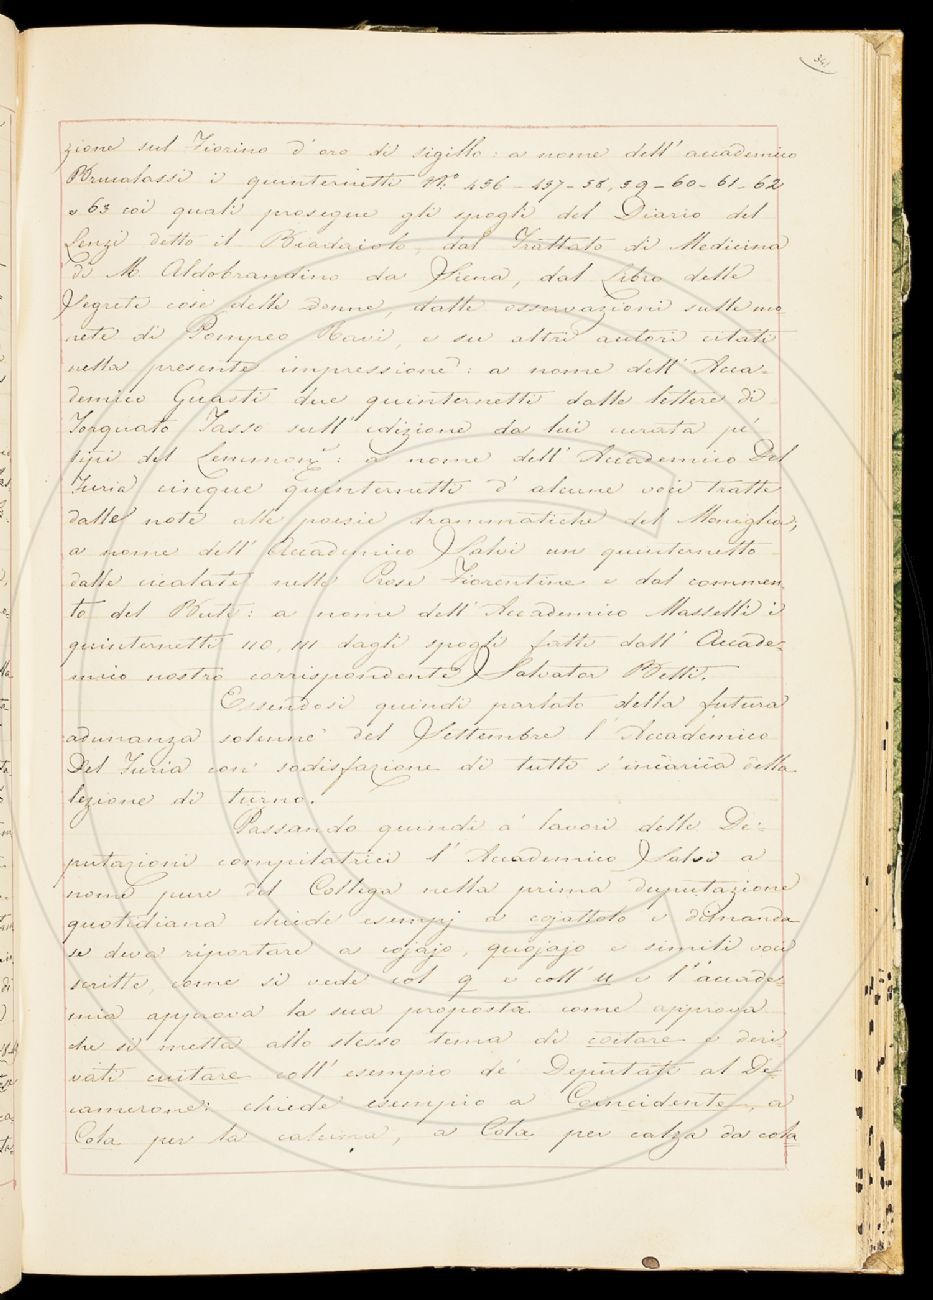 341
zione sul Fiorino d'oro di sigillo: a nome dell'accademico
Brucalassi i quinternetti N.° 456 - 457 - 58, 59 - 60 - 61 - 62
e 63 coi quali prosegue gli spogli del Diario del
Lenzi detto il Biadaiolo, dal Trattato di Medicina
di M. Aldobrandino da Siena, dal Libro delle
Segrete cose delle Donne, dalle osservazioni sulle mo-
nete di Pompeo e su altri autori citati
nella presente impressione: a nome dell'Acca-
demico Guasti due quinternetti dalle lettere di
Torquato Tasso sull'edizione da lui curata pe'
tipi del Lemmon.r: a nome dell'Accademico Del
Furia cinque quinternetti d'alcune voci tratte
dalle note alle poesie drammatiche del Moniglia;
a nome dell'Accademico Salvi un quinternetto
dalle cicalate nelle Prose Fiorentine e dal commen-
to del Buti: a nome dell'Accademico Masselli i
quinternetti 110, 111 dagli spogli fatti dall'Accade-
mico nostro corrispondente Salvator Betti.
Essendosi quindi parlato della futura
adunanza solenne del Settembre l'Accademico
Del Furia con sodisfazione di tutti s'incarica della
lezione di turno.
Passando quindi a' lavori delle De-
putazioni compilatrici l'Accademico Salvi a
nome pure del Collega nella prima deputazione
quotidiana chiede esempj a cojattolo e dimanda
se deva riportare a cojajo, quojajo e simili voci
scritte, come si vede col q e coll'u e l'accade-
mia approva la sua proposta come approva
che si metta allo stesso tema di coitare e deri
vati cuitare coll'esempio de' Deputati al De-
camerone: chiede esempio a Coincidente, a
Cola per la calcina, a Cola per calza da cola